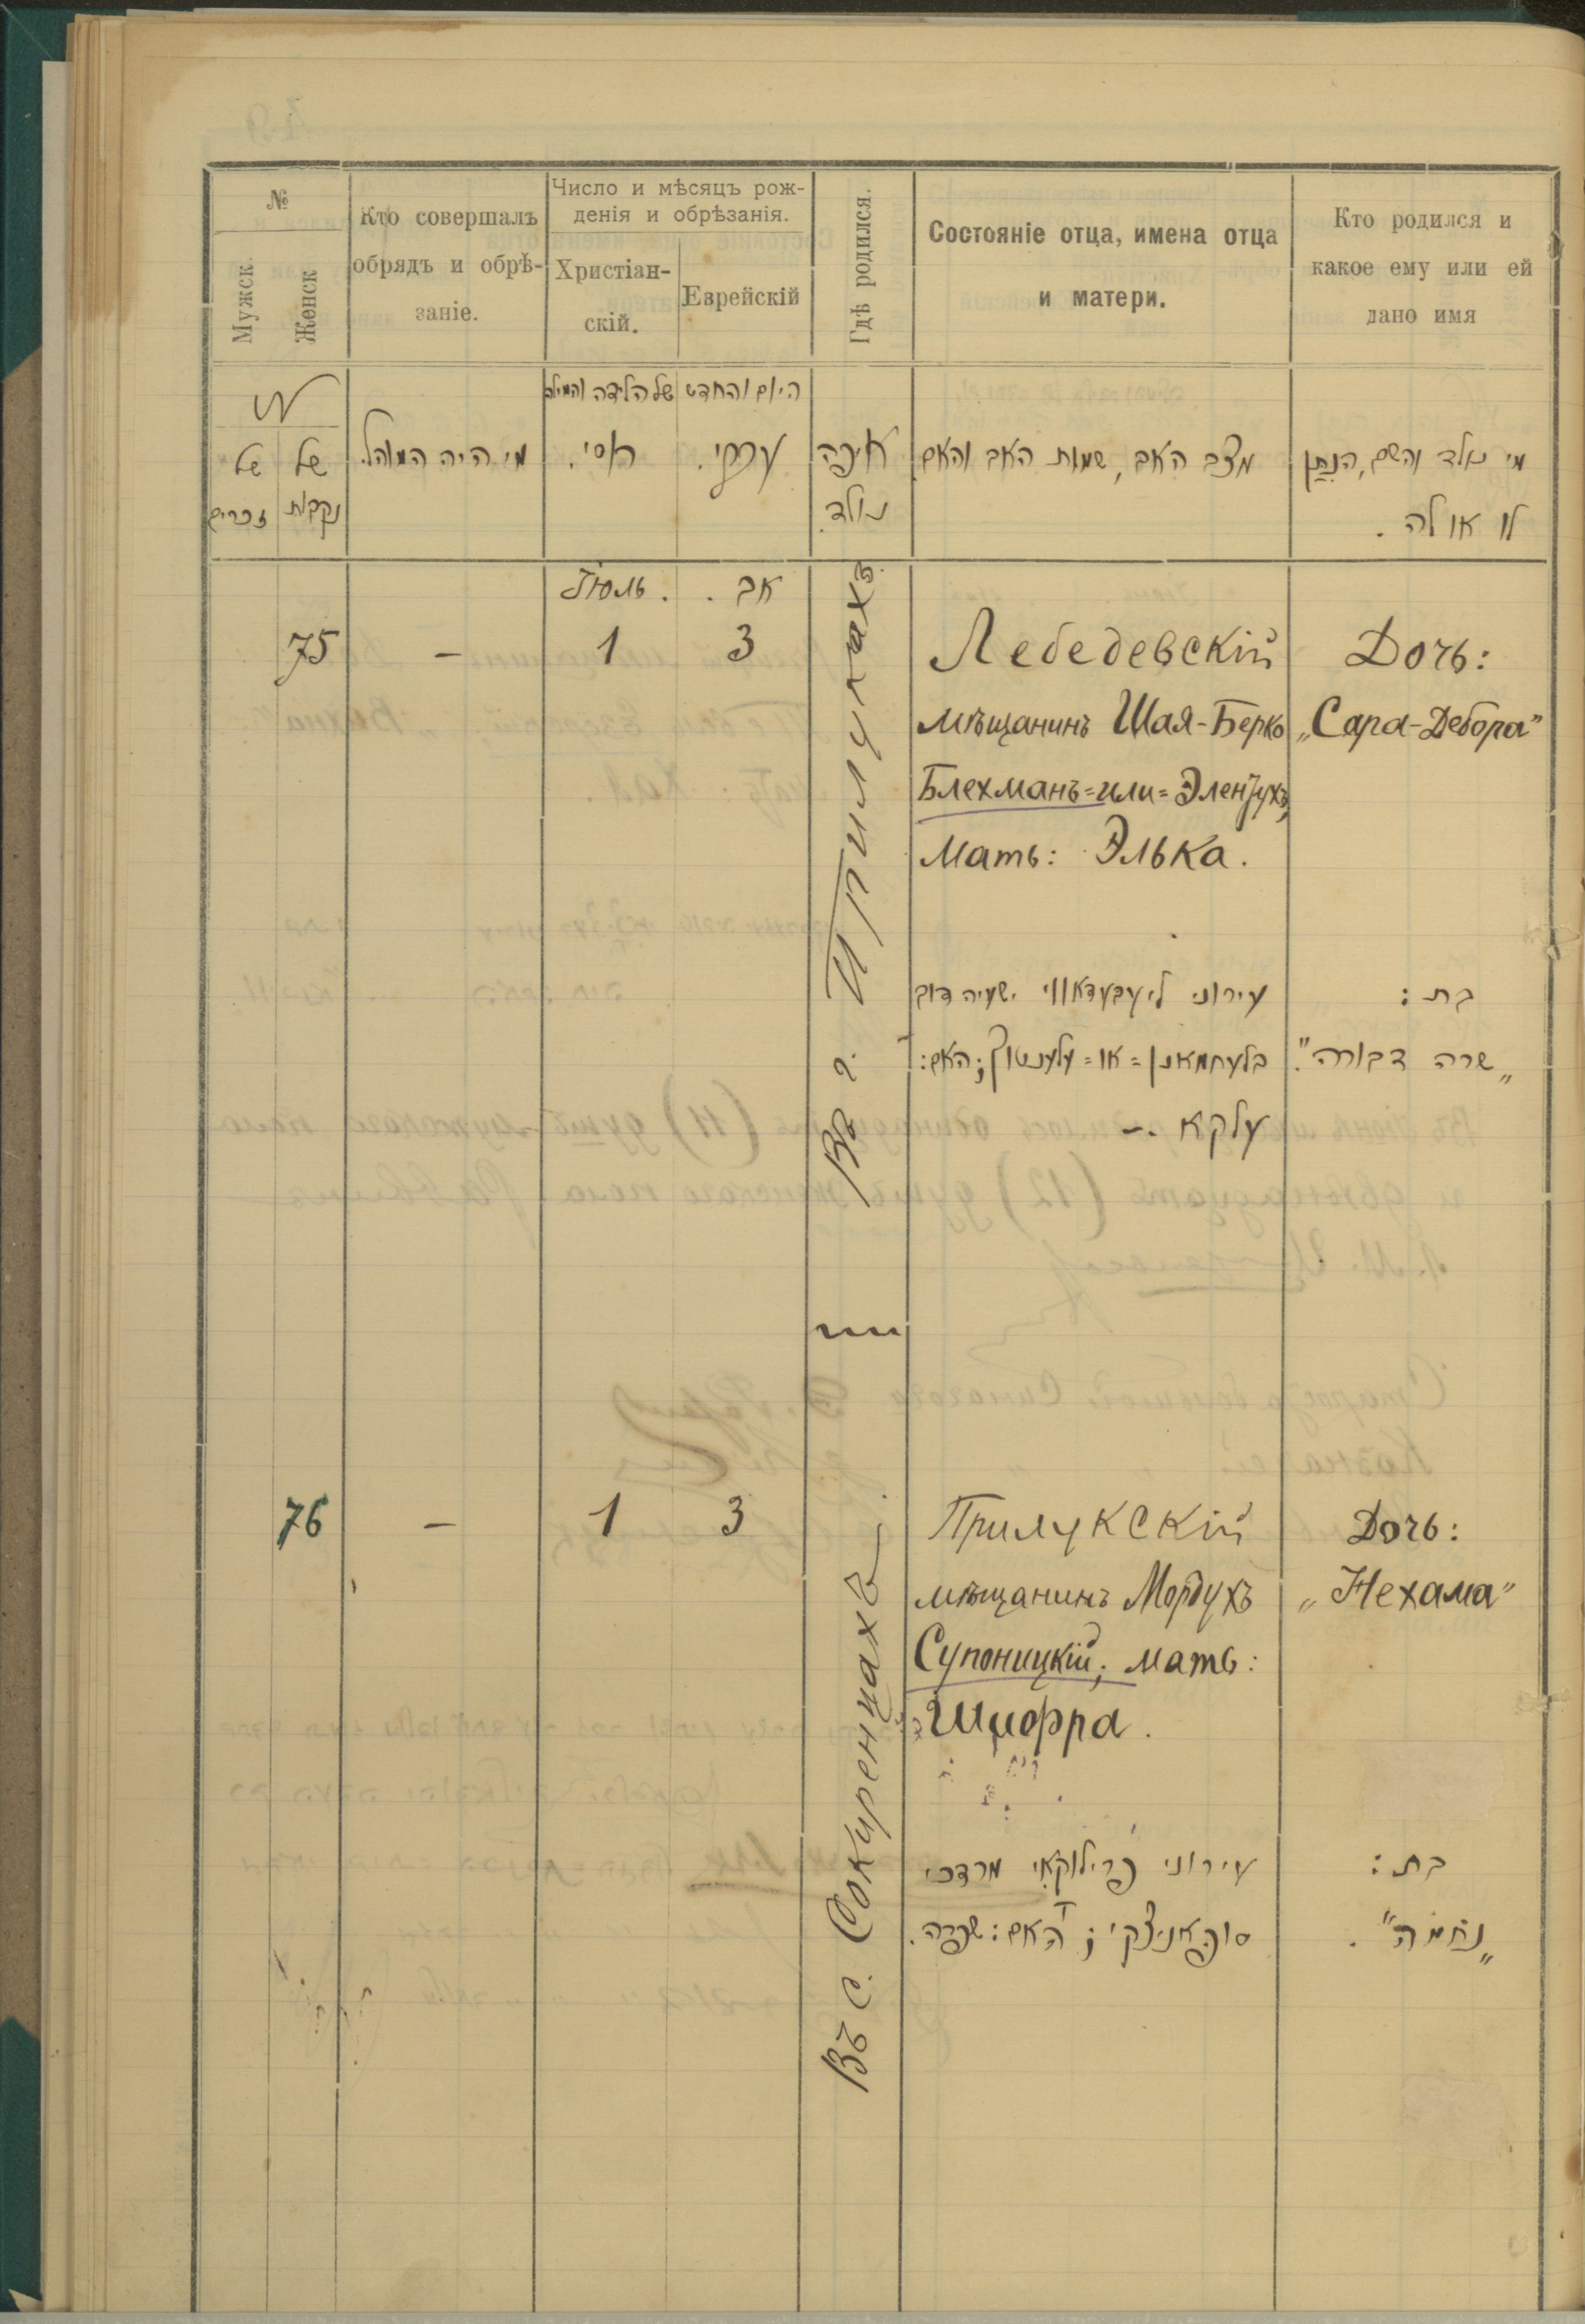 №
Мужск.
Женск
Кто совершалъ
обрядъ и обрѣ-
заніе.
Число и мѣсяцъ рож-
денія и обрѣзанія.
Христіан-
скій.
Еврейскій
Гдѣ родился.
Состояніе отца, имена отца
и матери.
Кто родился и
какое ему или ей
дано имя
№
של
זכרים
של
נקבות
מי היה המוהל.
היום והחדש של הלידה והמילה
רוסי.
עברי.
איפה
נולד.
מצב האב, שמות האב והאם
מי נולד והשם, הנתן
לו או לה.
Іюль.
אב.
75
-
1
3
Въ г. Прилукахъ.
Лебедевскій
мѣщанинъ Шая-Берко
Блехманъ=или=Элентухъ,
мать: Элька.
Дочь:
„Сара-Дебора"
עירוני ליעבעדאווי ישעיה דוב
בלעחמאנן=או=עלענטוך; האם:
עלקא.-
בת:
„שרה דבורה".
76
-
1
3
Въ с. Сокиренцахъ.
Прилукскій
мѣщанинъ Мордухъ
Супоницкій; мать:
Шифра.
Дочь:
„Нехама"
עירוני פרילוקאי מרדכי
סופאניצקי; האם: שפרה.
בת:
„נחמה".